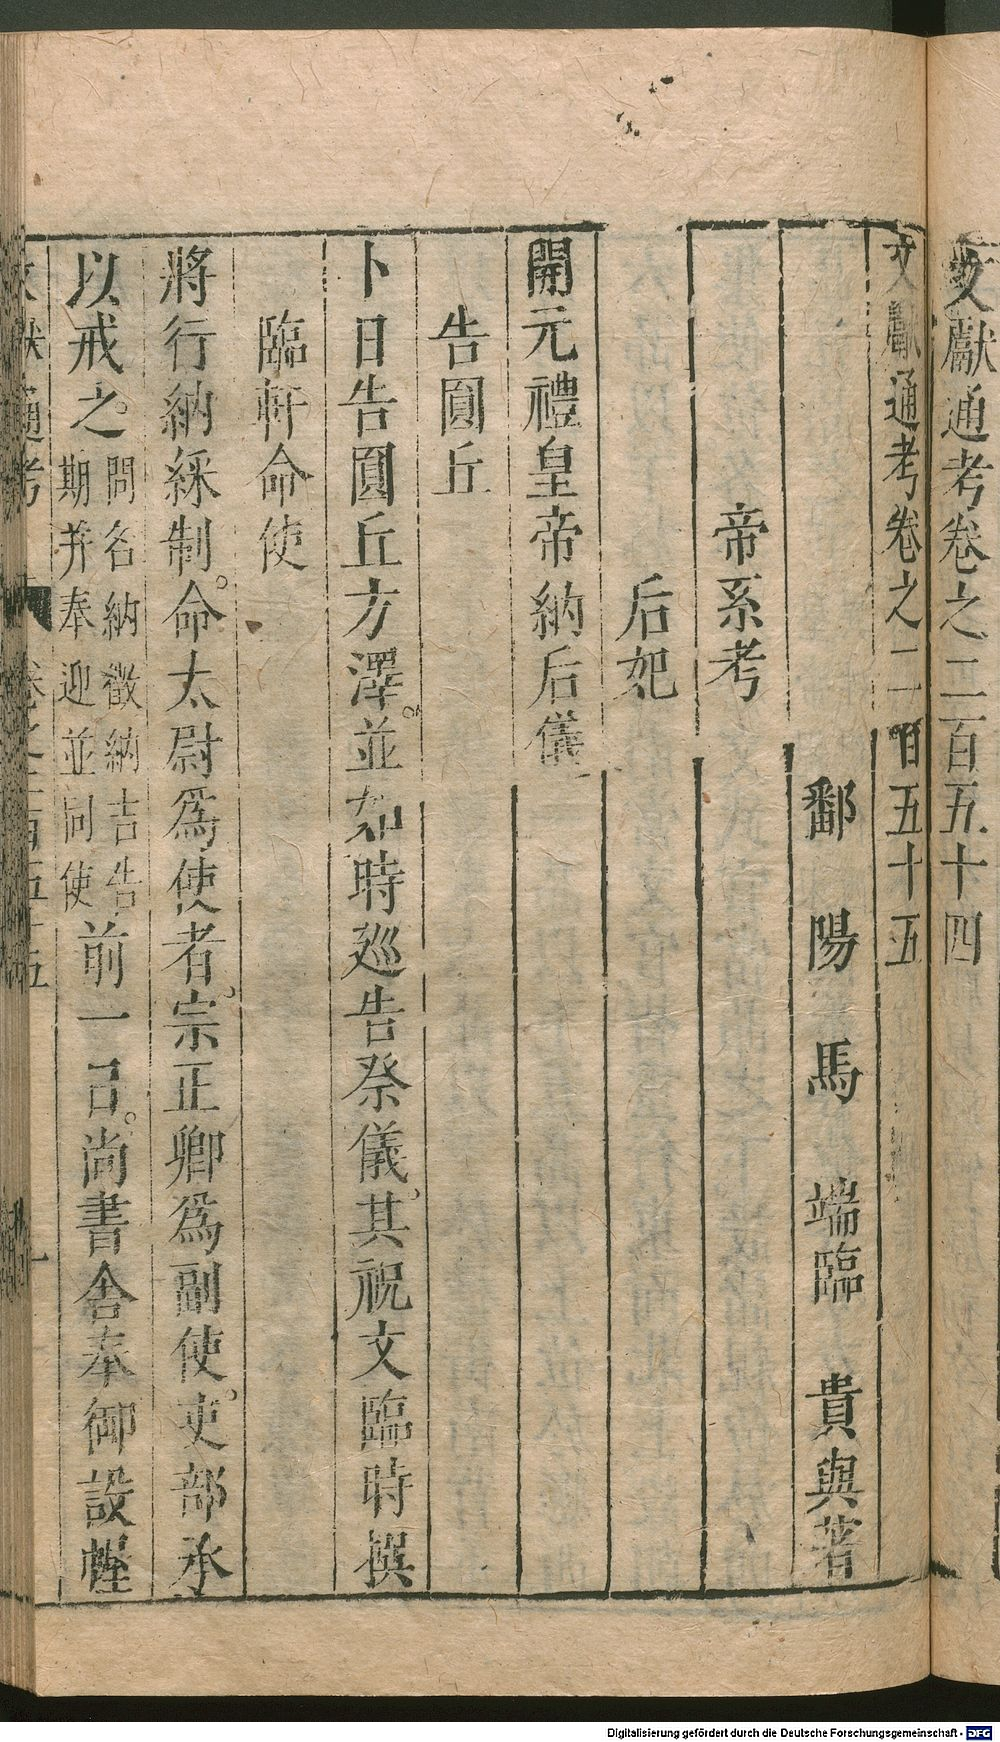 文獻通考卷之二百五十四
文獻通考卷之二百五十五
鄱陽馬端臨貴與著
帝系考
后妃
開元禮皇帝納后儀
告圓丘
卜日告圓丘方澤並如時巡告祭儀其祝文臨時撰
臨軒命使
將行納綵制命太尉爲使者宗正卿爲副使吏部承
以戒之問名納徵納吉告期并奉迎並同使前一日尚書舍奉御設幄
文獻通考 卷之二百五十五 一
Digitalisierung gefördert durch die Deutsche Forschungsgemeinschaft - DFG